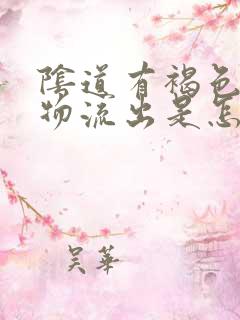 陰道有褐色
物流出是怎
吳華